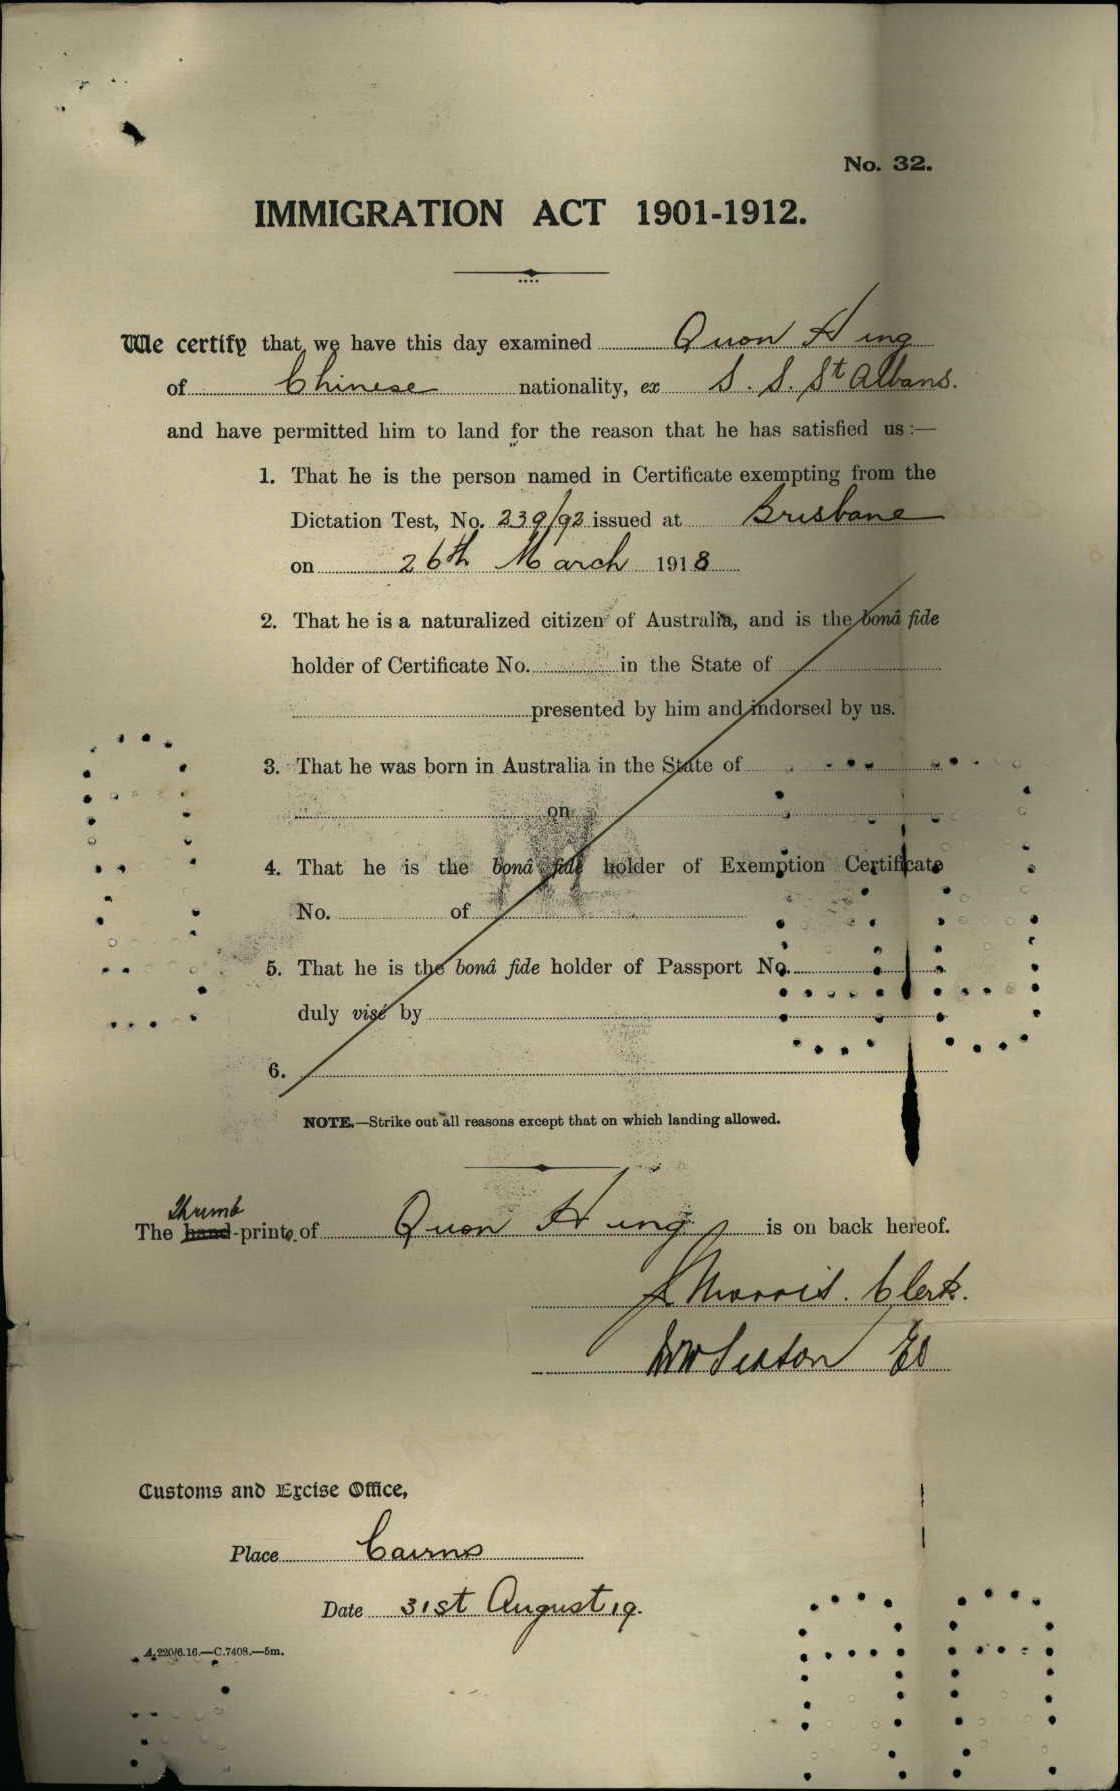 No. 32.
IMMIGRATION ACT 1901-1912.
We certify that we have this day examined Quon Hing
of Chinese nationality, ex S. S. St Albans.
and have permitted him to land for the reason that he has satisfied us :—
1. That he is the person named in Certificate exempting from the
Dictation Test, No. 239/92 issued at Brisbane
on 26th March 1918
2. That he is a naturalized citizen of Australia, and is the bonâ fide
holder of Certificate No. in the State of
presented by him and indorsed by us.
3. That he was born in Australia in the State of
on
4. That he is the bonâ fide holder of Exemption Certificate
No. of
5. That he is the bonâ fide holder of Passport No.
duly visé by
6.
NOTE.—Strike out all reasons except that on which landing allowed.
Thumb
The hand-prints of Quon Hing is on back hereof.
Morris. Clerk.
Seaton
Customs and Excise Office,
Place Cairns
Date 31st August 19.
A.220/6.16.—C.7408.—5m.